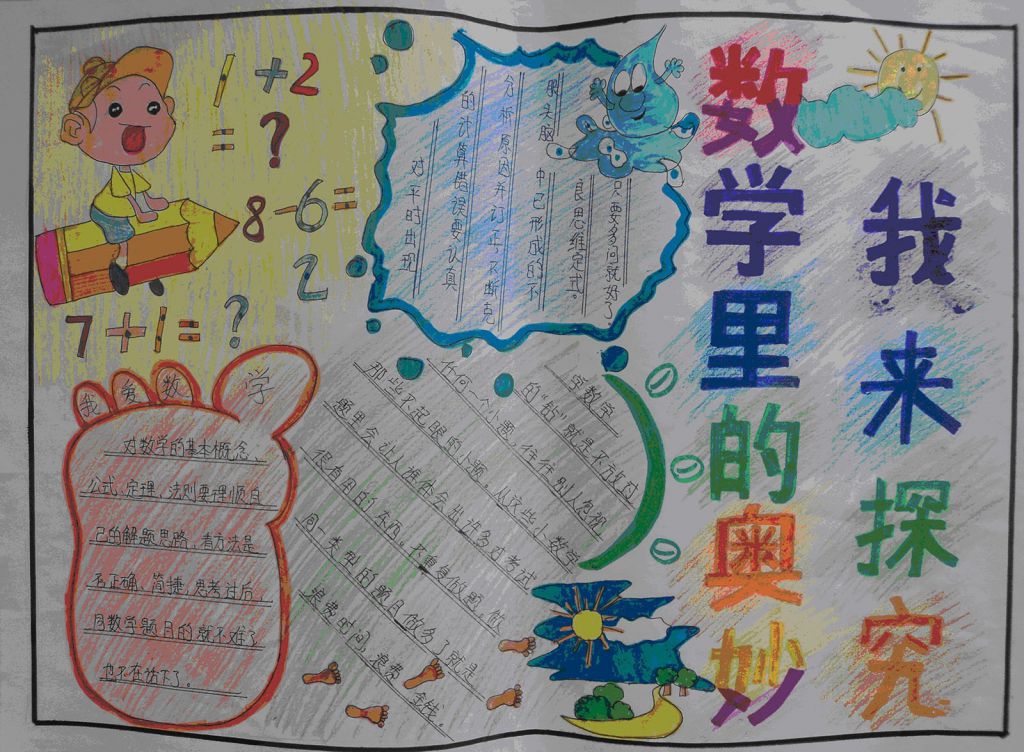 数学里的奥妙
我来探究
1+2
=?
8-6=
2
7+1=?
对平时出现
的计算错误要认真
分析原因并订正,不断克
服头脑中已形成的不
良思维定式。
只要多问就好了
我爱数学
对数学的基本概念、
公式、定理、法则要理顺自
己的解题思路,看方法是
否正确、简捷,思考过后,
数学题目的就不难了
也不在话下了。
学数学
的“钻”就是不放过
任何一个小题,往往别人忽视
那些不起眼的小题。从这些小数学
题里会让人会出许多对考试
很有用的东西。不重复做题,做
同一类型的题目做多了就是
浪费时间,浪费
金钱。